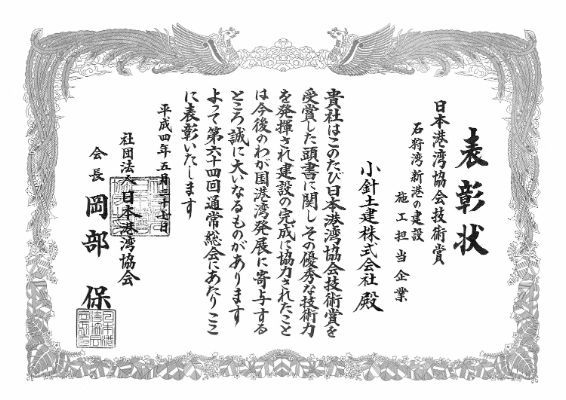 表彰状
日本港湾協会技術賞
石狩湾新港の建設
施工担当企業
小針土建株式会社 殿
貴社はこのたび日本港湾協会技術賞を
受賞した頭書に関しその優秀な技術力
を発揮され建設の完成に協力されたこと
は今後のわが国港湾発展に寄与する
ところ誠に大いなるものがあります
よって第六十四回通常総会にあたりここ
に表彰いたします
平成四年五月二十七日
社団法人 日本港湾協会
会長 岡部 保